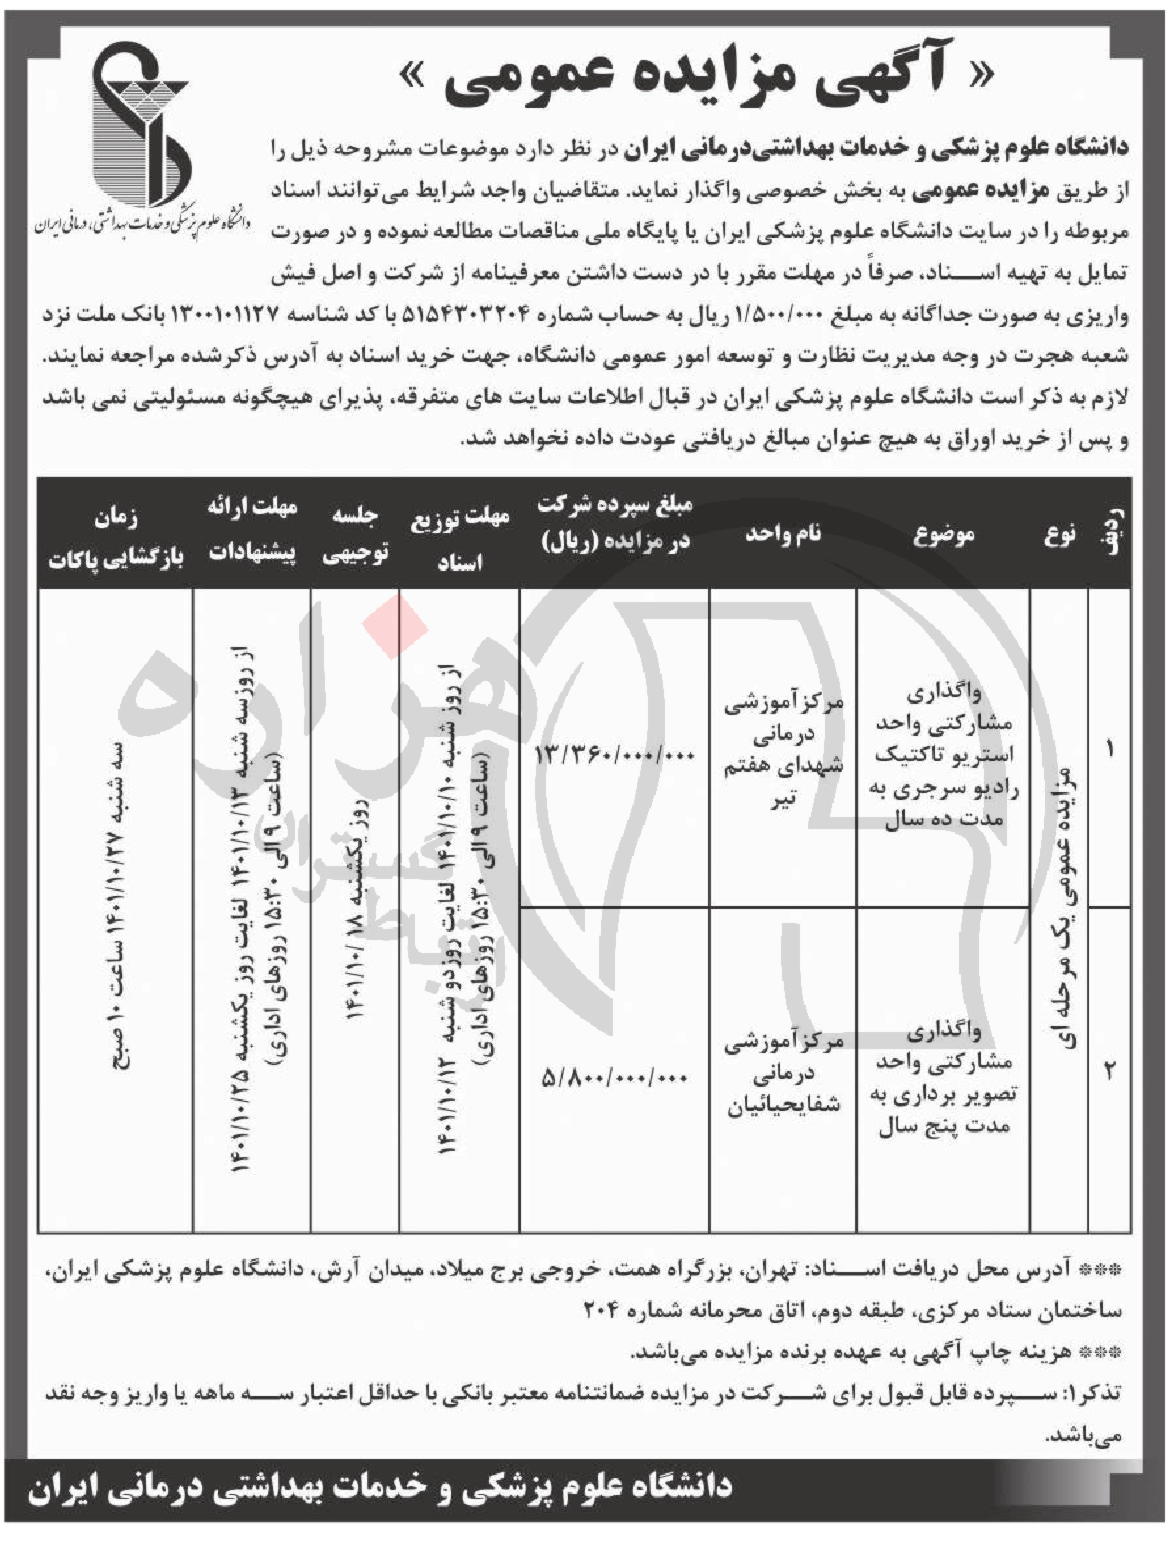 « آگهی مزایده عمومی »
دانشگاه علوم پزشکی و خدمات بهداشتی، درمانی ایران
دانشگاه علوم پزشکی و خدمات بهداشتی درمانی ایران در نظر دارد موضوعات مشروحه ذیل را
از طریق مزایده عمومی به بخش خصوصی واگذار نماید. متقاضیان واجد شرایط می‌توانند اسناد
مربوطه را در سایت دانشگاه علوم پزشکی ایران یا پایگاه ملی مناقصات مطالعه نموده و در صورت
تمایل به تهیه اسـناد، صرفاً در مهلت مقرر با در دست داشتن معرفینامه از شرکت و اصل فیش
واریزی به صورت جداگانه به مبلغ ۱/۵۰۰/۰۰۰ ریال به حساب شماره ۵۱۵۴۳۰۳۲۰۴ با کد شناسه ۱۳۰۰۱۰۱۱۲۷ بانک ملت نزد
شعبه هجرت در وجه مدیریت نظارت و توسعه امور عمومی دانشگاه، جهت خرید اسناد به آدرس ذکرشده مراجعه نمایند.
لازم به ذکر است دانشگاه علوم پزشکی ایران در قبال اطلاعات سایت های متفرقه، پذیرای هیچگونه مسئولیتی نمی باشد
و پس از خرید اوراق به هیچ عنوان مبالغ دریافتی عودت داده نخواهد شد.
ردیف
نوع
موضوع
نام واحد
مبلغ سپرده شرکت
در مزایده (ریال)
مهلت توزیع
اسناد
جلسه
توجیهی
مهلت ارائه
پیشنهادات
زمان
بازگشایی پاکات
۱
مزایده عمومی یک مرحله ای
واگذاری
مشارکتی واحد
استریو تاکتیک
رادیو سرجری به
مدت ده سال
مرکز آموزشی
درمانی
شهدای هفتم
تیر
۱۳/۳۶۰/۰۰۰/۰۰۰
از روز شنبه ۱۴۰۱/۱۰/۱۰ لغایت روز دو شنبه ۱۴۰۱/۱۰/۱۲
(ساعت ۹ الی ۱۵:۳۰ روزهای اداری)
روز یکشنبه ۱۴۰۱/۱۰/۱۸
از روز سه شنبه ۱۴۰۱/۱۰/۱۳ لغایت روز یکشنبه ۱۴۰۱/۱۰/۲۵
(ساعت ۹ الی ۱۵:۳۰ روزهای اداری)
سه شنبه ۱۴۰۱/۱۰/۲۷ ساعت ۱۰ صبح
۲
واگذاری
مشارکتی واحد
تصویر برداری به
مدت پنج سال
مرکز آموزشی
درمانی
شفایحیائیان
۵/۸۰۰/۰۰۰/۰۰۰
هزاره
ارتباط گستران
*** آدرس محل دریافت اسـناد: تهران، بزرگراه همت، خروجی برج میلاد، میدان آرش، دانشگاه علوم پزشکی ایران،
ساختمان ستاد مرکزی، طبقه دوم، اتاق محرمانه شماره ۲۰۴
*** هزینه چاپ آگهی به عهده برنده مزایده می‌باشد.
تذکر۱: سـپرده قابل قبول برای شـرکت در مزایده ضمانتنامه معتبر بانکی با حداقل اعتبار سـه ماهه یا واریز وجه نقد
می‌باشد.
دانشگاه علوم پزشکی و خدمات بهداشتی درمانی ایران